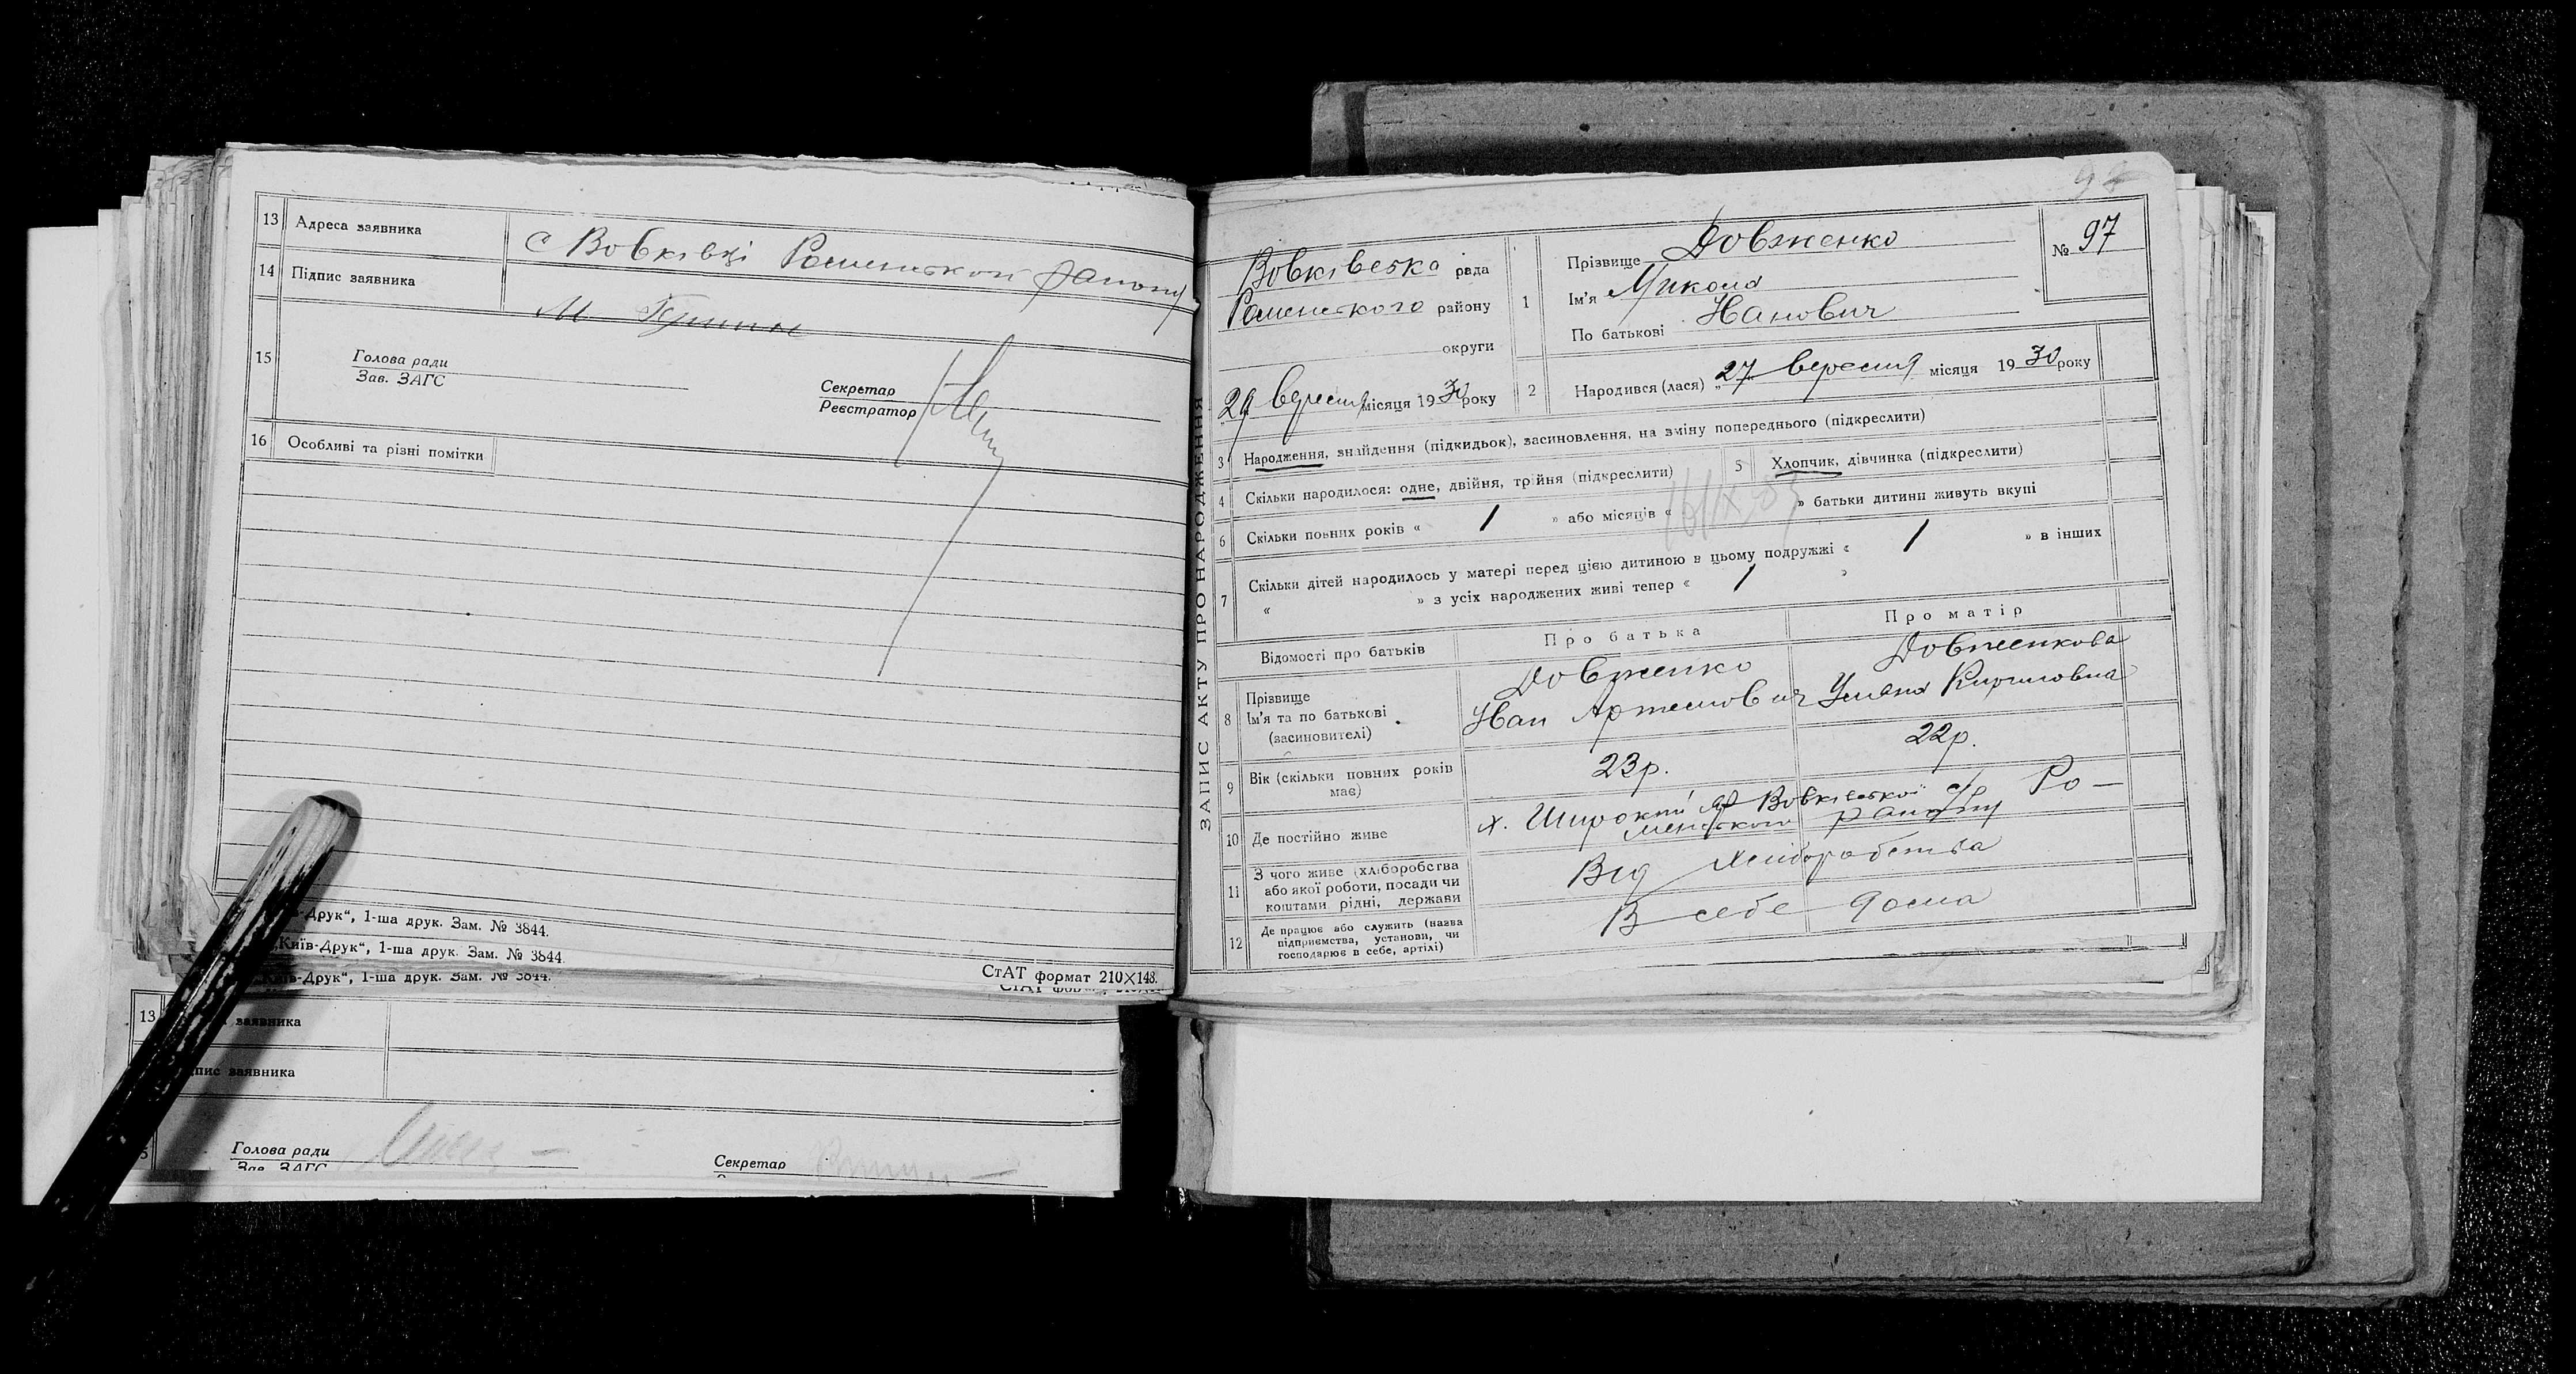 13 Адреса заявника с Вовківці Роменського району
14 Підпис заявника
15 Голова ради
Зав. ЗАГС
Секретар
Реєстратор
16 Особливі та різні помітки
-Друк“, 1-ша друк. Зам. № 3844.
„Київ-Друк“, 1-ша друк. Зам. № 3844.
-Друк“, 1-ша друк. Зам. № 3844.
СтАТ формат 210×148.
13 заявника
заявника
Голова ради
Зав. ЗАГС
Секретар
ЗАПИС АКТУ ПРО НАРОДЖЕННЯ
Вовківська рада
Роменського району
округи
29 вересня місяця 1930 року
1 Прізвище Довженко
Ім'я Микола
По батькові Іванович
№ 97
2 Народився (лася) „27“ вересня місяця 1930 року
3 Народження, знайдення (підкидьок), засиновлення, на зміну попереднього (підкреслити)
4 Скільки народилося: одне, двійня, трійня (підкреслити)
5 Хлопчик, дівчинка (підкреслити)
6 Скільки повних років « 1 » або місяців « » батьки дитини живуть вкупі
7 Скільки дітей народилось у матері перед цією дитиною в цьому подружжі « 1 » в інших
« » з усіх народжених живі тепер « 1 »
Відомості про батьків
Про батька
Про матір
8 Прізвище
Ім'я та по батькові
(засиновителі)
Довженко
Іван Артемович
Довженкова
Уляна Кириловна
9 Вік (скільки повних років
має)
23р.
22р.
10 Де постійно живе
х. Широкий Яр Вовківської с/р Ро-
менського району
11 З чого живе (хліборобства
або якої роботи, посади чи
коштами рідні, держави
Від хліборобства
12 Де працює або служить (назва
підприємства, установи, чи
господарює в себе, артілі)
В себе дома